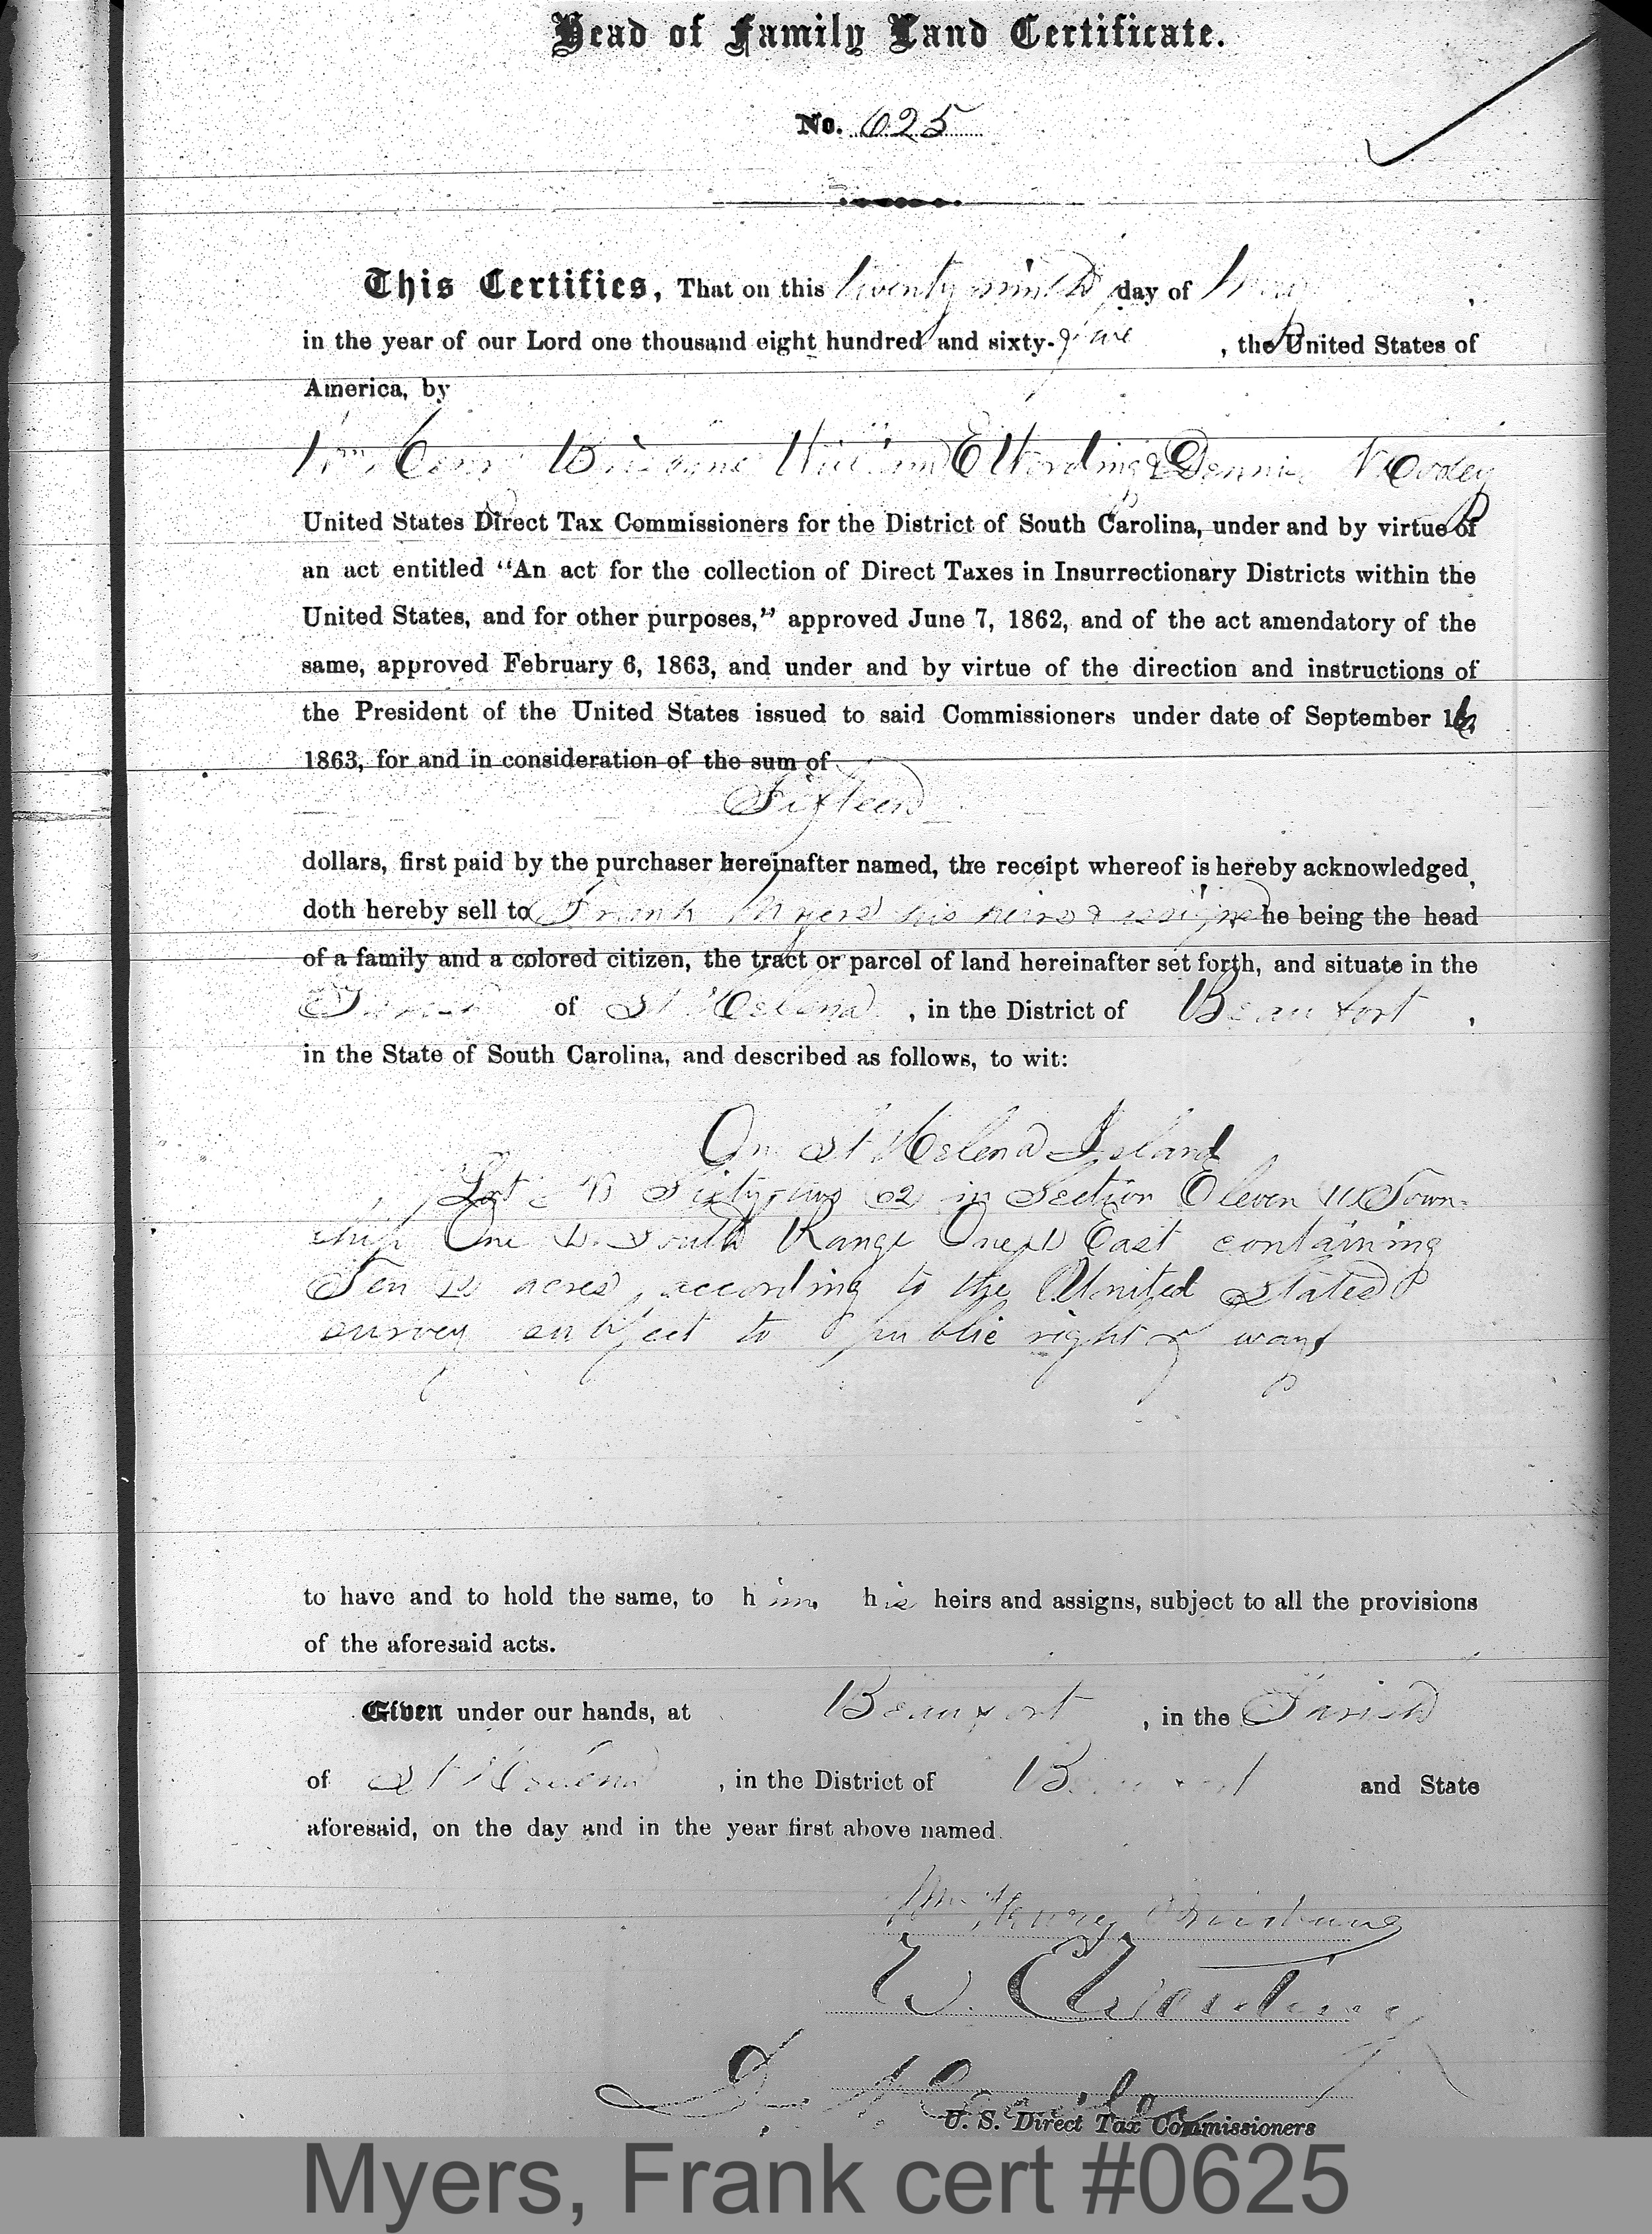 Head of Family Land Certificate.
No. 625
This Certifies, That on this twenty ninth day of May,
in the year of our Lord one thousand eight hundred and sixty-five, the United States of
America, by
Wm Henry Brisbane William E Wording & Dennis N Cooley
United States Direct Tax Commissioners for the District of South Carolina, under and by virtue of
an act entitled “An act for the collection of Direct Taxes in Insurrectionary Districts within the
United States, and for other purposes,” approved June 7, 1862, and of the act amendatory of the
same, approved February 6, 1863, and under and by virtue of the direction and instructions of
the President of the United States issued to said Commissioners under date of September 16,
1863, for and in consideration of the sum of
Sixteen
dollars, first paid by the purchaser hereinafter named, the receipt whereof is hereby acknowledged,
doth hereby sell to Frank Myers his heirs & assigns he being the head
of a family and a colored citizen, the tract or parcel of land hereinafter set forth, and situate in the
Parish of St Helena, in the District of Beaufort,
in the State of South Carolina, and described as follows, to wit:
On St Helena Island
Lot Sixty two 62 in Section Eleven 11 Town-
ship One 1. South Range One 1 East containing
Ten 10 acres, according to the United States
survey subject to public right of way
to have and to hold the same, to him, his heirs and assigns, subject to all the provisions
of the aforesaid acts.
Given under our hands, at Beaufort, in the Parish
of St Helena, in the District of Beaufort and State
aforesaid, on the day and in the year first above named.
Wm Henry Brisbane
W. E. Wording
D. N. Cooley
U. S. Direct Tax Commissioners
Myers, Frank cert #0625